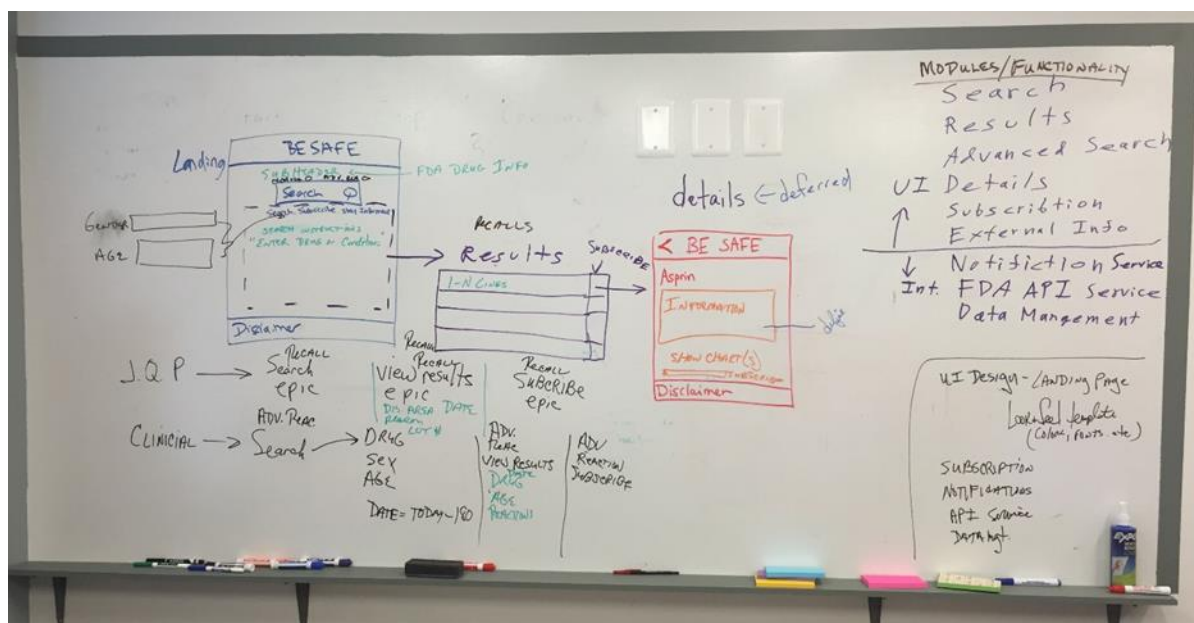 Landing
BESAFE
SUBHEADER
FDA DRUG INFO
Search
"ENTER DRUG OR Condition"
GENDER
AGE
Disclaimer
RECALLS
Results
SUBSCRIBE
1-N LINES
details ← deferred
< BE SAFE
Asprin
INFORMATION
SHOW CHART(S)
SUBSCRIBE
Disclaimer
J.Q.P
RECALL
Search
epic
RECALL
RECALL
VIEW results
epic
DATE
REASON
LOT #
RECALL
SUBCRIBE
epic
CLINICIAL
ADV. REAC
Search
DRUG
SEX
AGE
DATE = TODAY - 180
ADV.
REAC
VIEW RESULTS
DATE
DRUG
AGE
REACTIONS
ADV
REACTION
SUBSCRIBE
MODULES/FUNCTIONALITY
Search
Results
Advanced Search
UI Details
Subscribtion
External Info
Notifiction Service
Int. FDA API Service
Data Mangement
UI Design - LANDING PAGE
Look & Feel template
(Colors, FONTS..etc)
SUBSCRIPTION
NOTIFICATIONS
API Service
DATA Mgt.
EXPO